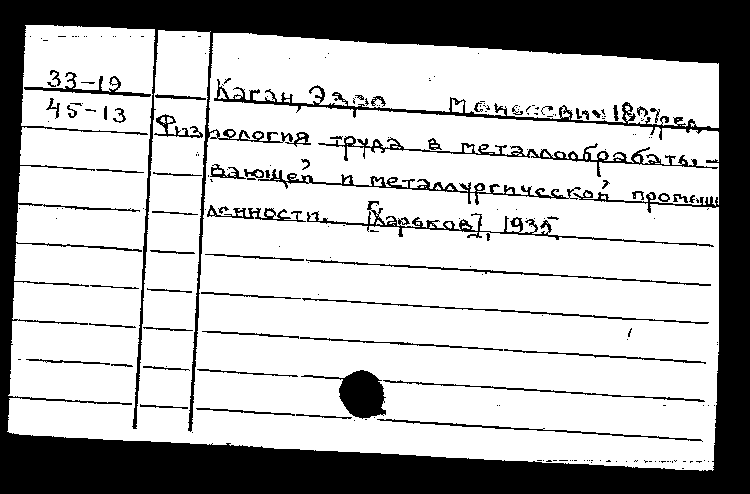 33-19
Каган, Эзро Манассевич ред.
45-13
Физиология труда в металлообрабаты-
вающей и металлургической промыш
ленности. [Харьков], 1935.